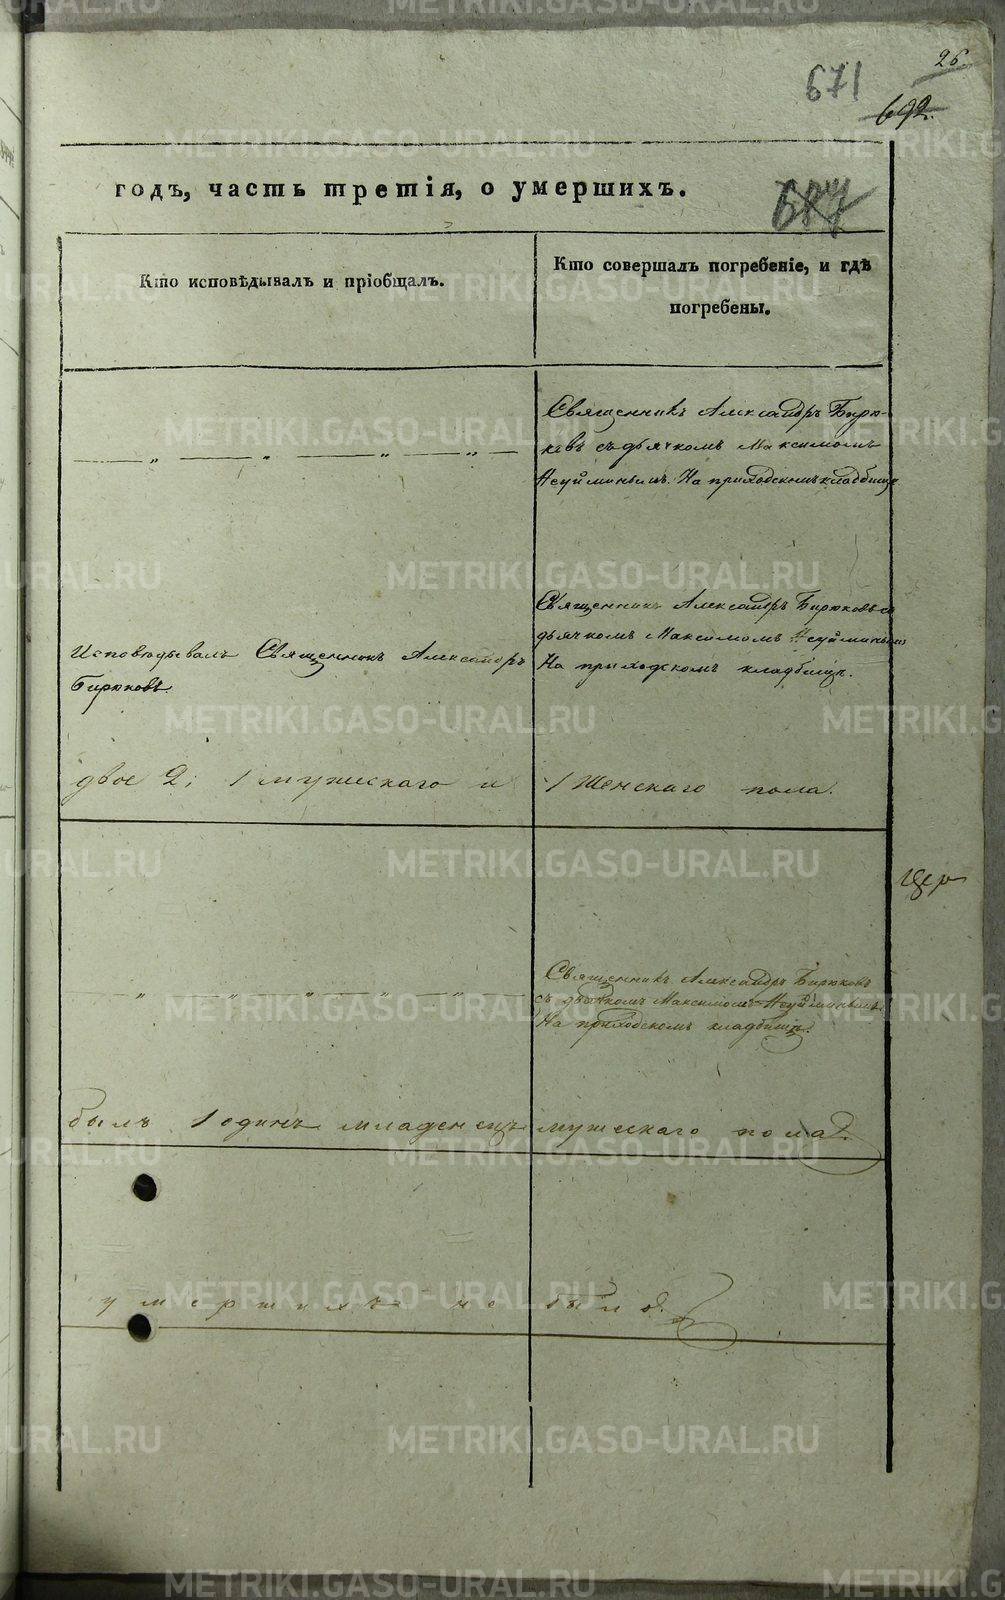 26.
671
692.
годъ, часть третія, о умершихъ.
687
Кто исповѣдывалъ и пріобщалъ.
Кто совершалъ погребеніе, и гдѣ
погребены.
Священникъ Александръ Бирю-
ковъ съ дьячкомъ Максимомъ
Неуйминымъ. На приходскомъ кладбищѣ
— „ — „ — „ — „ —
Священникъ Александръ Бирюковъ съ
дьячкомъ Максимомъ Неуйминымъ
На приходскомъ кладбищѣ.
Исповѣдывалъ Священникъ Александръ
Бирюковъ.
двое 2; 1 мужескаго и 1 женскаго пола.
Священникъ Александръ Бирюковъ
съ дьячкомъ Максимомъ Неуйминымъ
На приходскомъ кладбищѣ.
— „ — „ — „ — „ — „ —
былъ 1 одинъ младенецъ мужескаго пола.
умершихъ не было.
METRIKI.GASO-URAL.RU